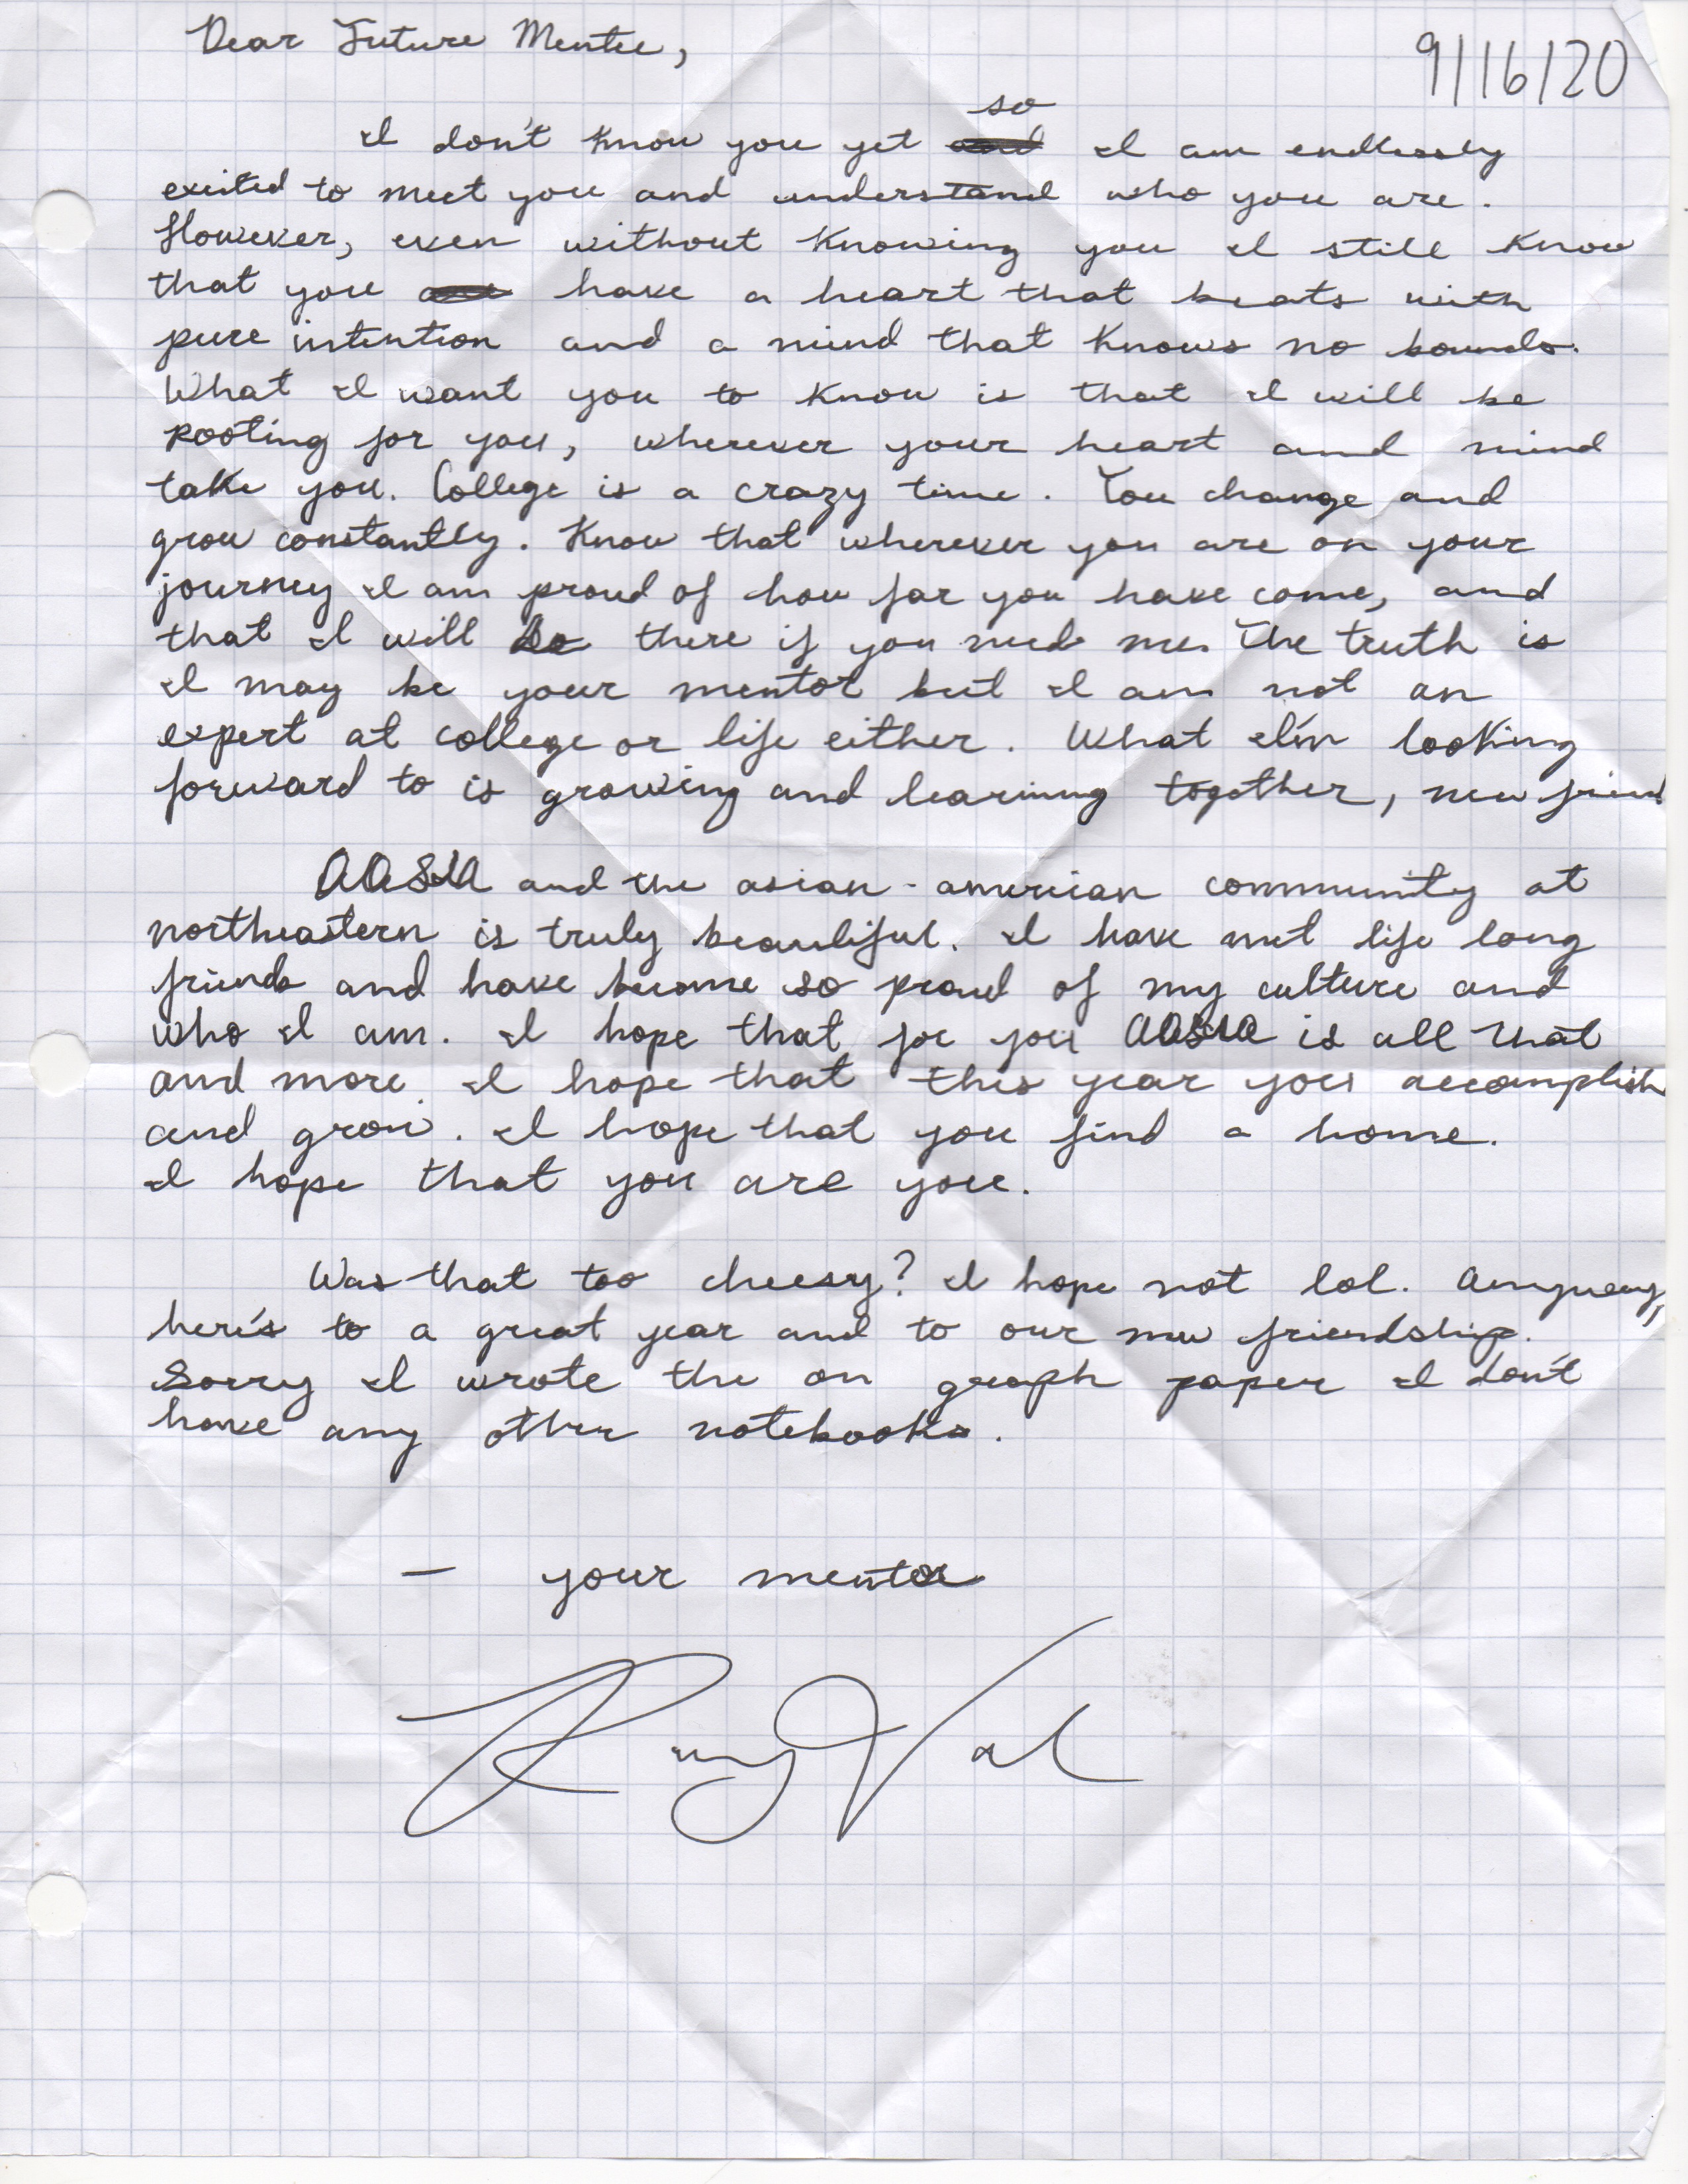 Dear Future Mentee,
9/16/20
so
I don't know you yet and I am endlessly
excited to meet you and understand who you are.
However, even without knowing you I still know
that you are have a heart that beats with
pure intention and a mind that knows no bounds.
What I want you to know is that I will be
rooting for you, wherever your heart and mind
take you. College is a crazy time. You change and
grow constantly. Know that wherever you are on your
journey I am proud of how far you have come, and
that I will be there if you need me. The truth is
I may be your mentor but I am not an
expert at college or life either. What I'm looking
forward to is growing and learning together, new friend
AASIA and the asian-american community at
northeastern is truly beautiful. I have met life long
friends and have become so proud of my culture and
who I am. I hope that for you AASIA is all that
and more. I hope that this year you accomplish
and grow. I hope that you find a home.
I hope that you are you.
Was that too cheesy? I hope not lol. Anyway,
here's to a great year and to our new friendship.
Sorry I wrote the on graph paper I don't
have any other notebooks.
— your mentor